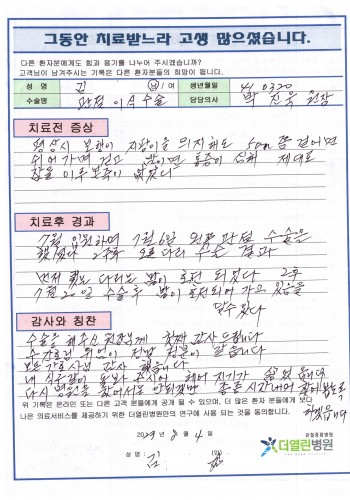 그동안 치료받느라 고생 많으셨습니다.
다른 환자분에게도 힘과 용기를 나누어 주시겠습니까?
고객님이 남겨주시는 기록은 다른 환자분들의 희망이 됩니다.
성 명 김 남/여 생년월일 41 0320
수술명 관절 이식 수술 담당의사 박 진욱 원장
치료전 증상
평상시 보행이 지팡이을 의지해도 50m 쯤 걸어면
쉬어가며 걷고 밤이면 통증이 심해 제대로
잠을 이루본죽이 없었다
치료후 경과
7월 입원하여 7월 6일 왼쪽 관절 수술을
했었다 2주후 오른다리 수술 결과
먼저 다리는 많이 호전 되었다 2주
7월 20일 수술후 많이 호전되어 가고 있음을
알수 있다
감사와 칭찬
수술을 해주신 원장님께 감사 드립니다
수간호원 위 전번 친절이
모든 간호사님 감사 했읍니다
내 식구같이 돌봐 해어지기가 읍니다
다시 병원을 찾어서는 안되겠만 좋은 시간내어 찾어 보도록
하겠읍니다
위 기록은 온라인 또는 다른 고객 분들에게 공개 될 수 있으며, 더 많은 환자 분들에게 보다
나은 의료서비스를 제공하기 위한 더열린병원만의 연구에 사용 되는 것을 동의합니다.
2029 년 8 월 4 일
성 명 : 김 (인)
관절중점병원
더열린병원